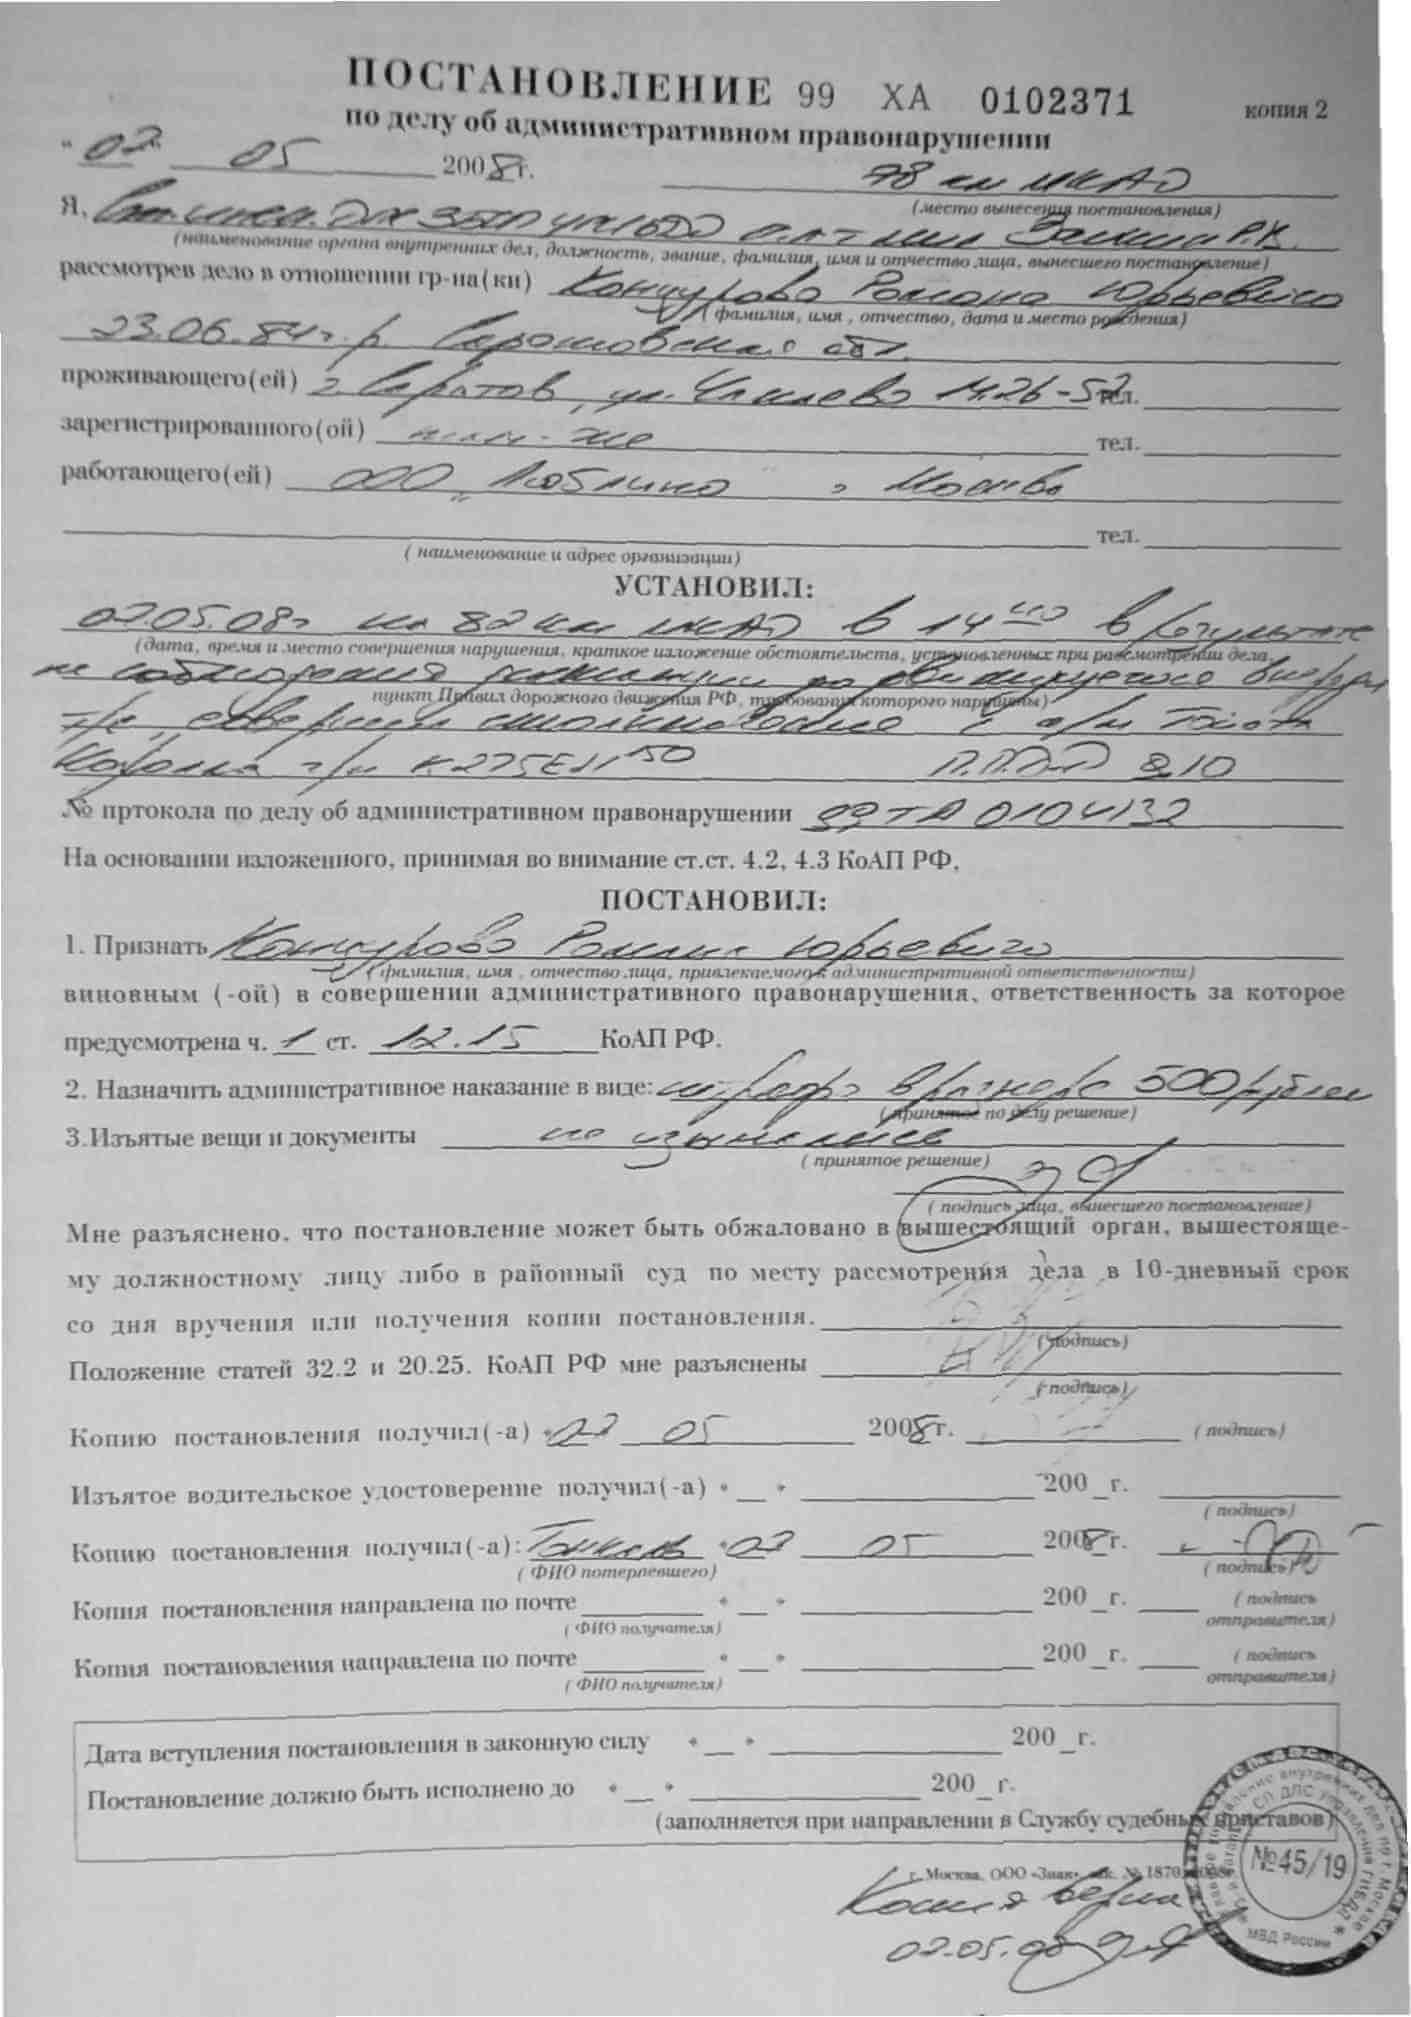 ПОСТАНОВЛЕНИЕ 99 ХА 0102371 копия 2
по делу об административном правонарушении
" 07 " 05 2008 г. 78 км МКАД
(место вынесения постановления)
Я,
(наименование органа внутренних дел, должность, звание, фамилия, имя и отчество лица, вынесшего постановление)
рассмотрев дело в отношении гр-на(ки) Романа Юрьевича
(фамилия, имя , отчество, дата и место рождения)
23.06.84 г.р. Саратовская обл.
проживающего(ей) г. Саратов, ул. 14.26-52 тел.
зарегистрированного(ой) там-же тел.
работающего(ей) ООО "Люблино г Москва
тел.
( наименование и адрес организации)
УСТАНОВИЛ:
07.05.08г на 82 км МКАД в 14 00 в результате
(дата, время и место совершения нарушения, краткое изложение обстоятельств, установленных при рассмотрении дела,
не соблюдения дистанции до движущегося впереди
пункт Правил дорожного движения РФ, требования которого нарушены)
т/с, совершил столкновение с а/м Тойота
Королла г/н П.П.Д.Д 9.10
№ пртокола по делу об административном правонарушении 99 ТА 0104132
На основании изложенного, принимая во внимание ст.ст. 4.2, 4.3 КоАП РФ,
ПОСТАНОВИЛ:
1. Признать Романа Юрьевича
(фамилия, имя , отчество лица, привлекаемого к административной ответственности)
виновным (-ой) в совершении административного правонарушения, ответственность за которое
предусмотрена ч. 1 ст. 12.15 КоАП РФ.
2. Назначить административное наказание в виде: штрафа в размере 500 рублей
( принятое по делу решение)
3.Изъятые вещи и документы не изымались
( принятое решение)
( подпись лица, вынесшего постановление)
Мне разъяснено, что постановление может быть обжаловано в вышестоящий орган, вышестояще-
му должностному лицу либо в районный суд по месту рассмотрения дела в 10-дневный срок
со дня вручения или получения копии постановления.
( подпись)
Положение статей 32.2 и 20.25. КоАП РФ мне разъяснены
( подпись)
Копию постановления получил(-а) " 07 05 2008 г. ( подпись)
Изъятое водительское удостоверение получил(-а) " " 200 г.
( подпись)
Копию постановления получил(-а): " 07 05 2008 г.
( ФИО потерпевшего) ( подпись)
Копия постановления направлена по почте " " 200 г. ( подпись
( ФИО получателя) отправителя)
Копия постановления направлена по почте " " 200 г. ( подпись
( ФИО получателя) отправителя)
Дата вступления постановления в законную силу " " 200 г.
Постановление должно быть исполнено до " " 200 г.
(заполняется при направлении в Службу судебных приставов)
г. Москва, ООО «Знак»,
Копия верна
07.05.08
№45/19
МВД России